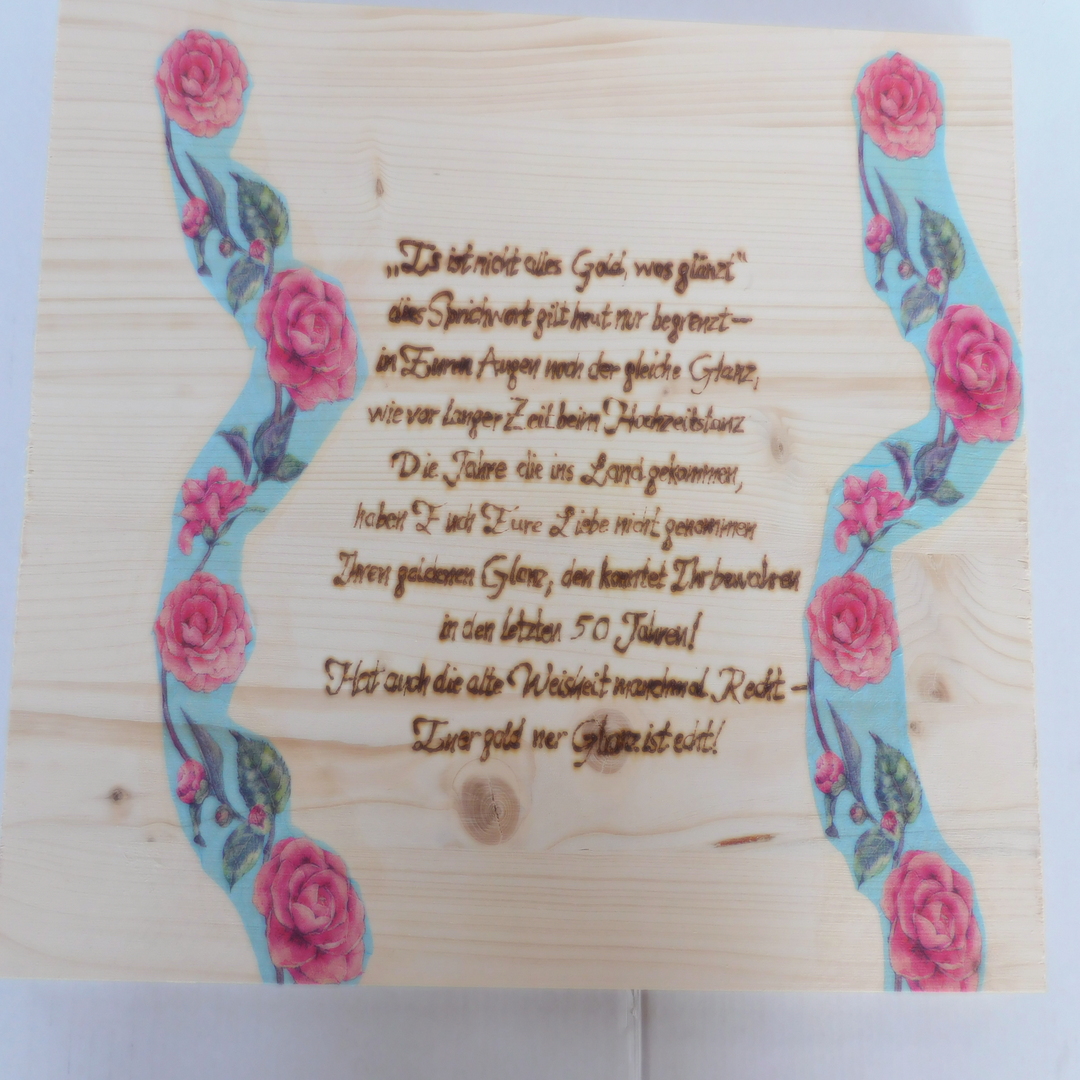 „Es ist nicht alles Gold, was glänzt“
dies Sprichwort gilt heut nur begrenzt—
in Euren Augen noch der gleiche Glanz,
wie vor langer Zeit beim Hochzeitstanz
Die Jahre die ins Land gekommen,
haben Euch Eure Liebe nicht genommen
Ihren goldenen Glanz, den konntet Ihr bewahren
in den letzten 50 Jahren!
Hat auch die alte Weisheit manchmal Recht —
Euer gold'ner Glanz ist echt!